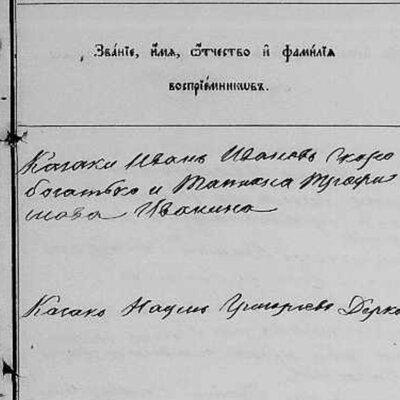 Зва́нїе, и҆́мѧ, ѻ҆́тчество и҆ фами́лїѧ
воспрїе́мникѡвъ.
Казаки Иванъ Ивановъ Скоро
богатько и Татіана Трофи
мова Ивакина
Казакъ Наумъ Григорьевъ Дерка